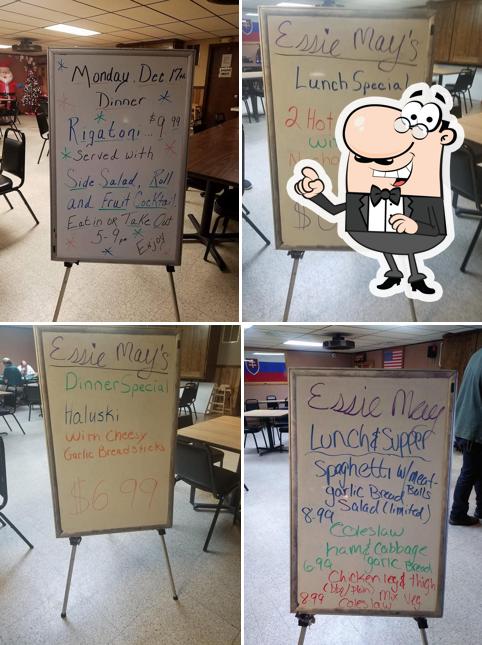 Monday, Dec 17th
Dinner
Rigatoni... $9.99
Served with
Side Salad, Roll
and Fruit Cocktail
Eat in or Take Out
5-9pm Enjoy!
Essie May's
Lunch Special
2 Hot
Essie May's
Dinner Special
Haluski
With Cheesy
Garlic Breadsticks
$6.99
Essie May
Lunch & Supper
Spaghetti w/meat-
Balls
garlic Bread
Salad (limited)
8.99
Coleslaw
ham & Cabbage
6.99 garlic Bread
Chicken leg & thigh
(bbq/plain) Mix Veg
8.99 Coleslaw